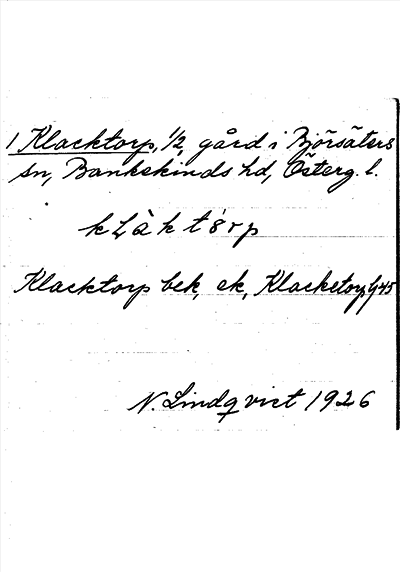 1 Klacktorp, 1/2, gård i Björsäters
sn, Bankekinds hd, Österg. l.
kLàktórp
Klacktorp bek, ek, Klacketorp G45
N. Lindqvist 1926